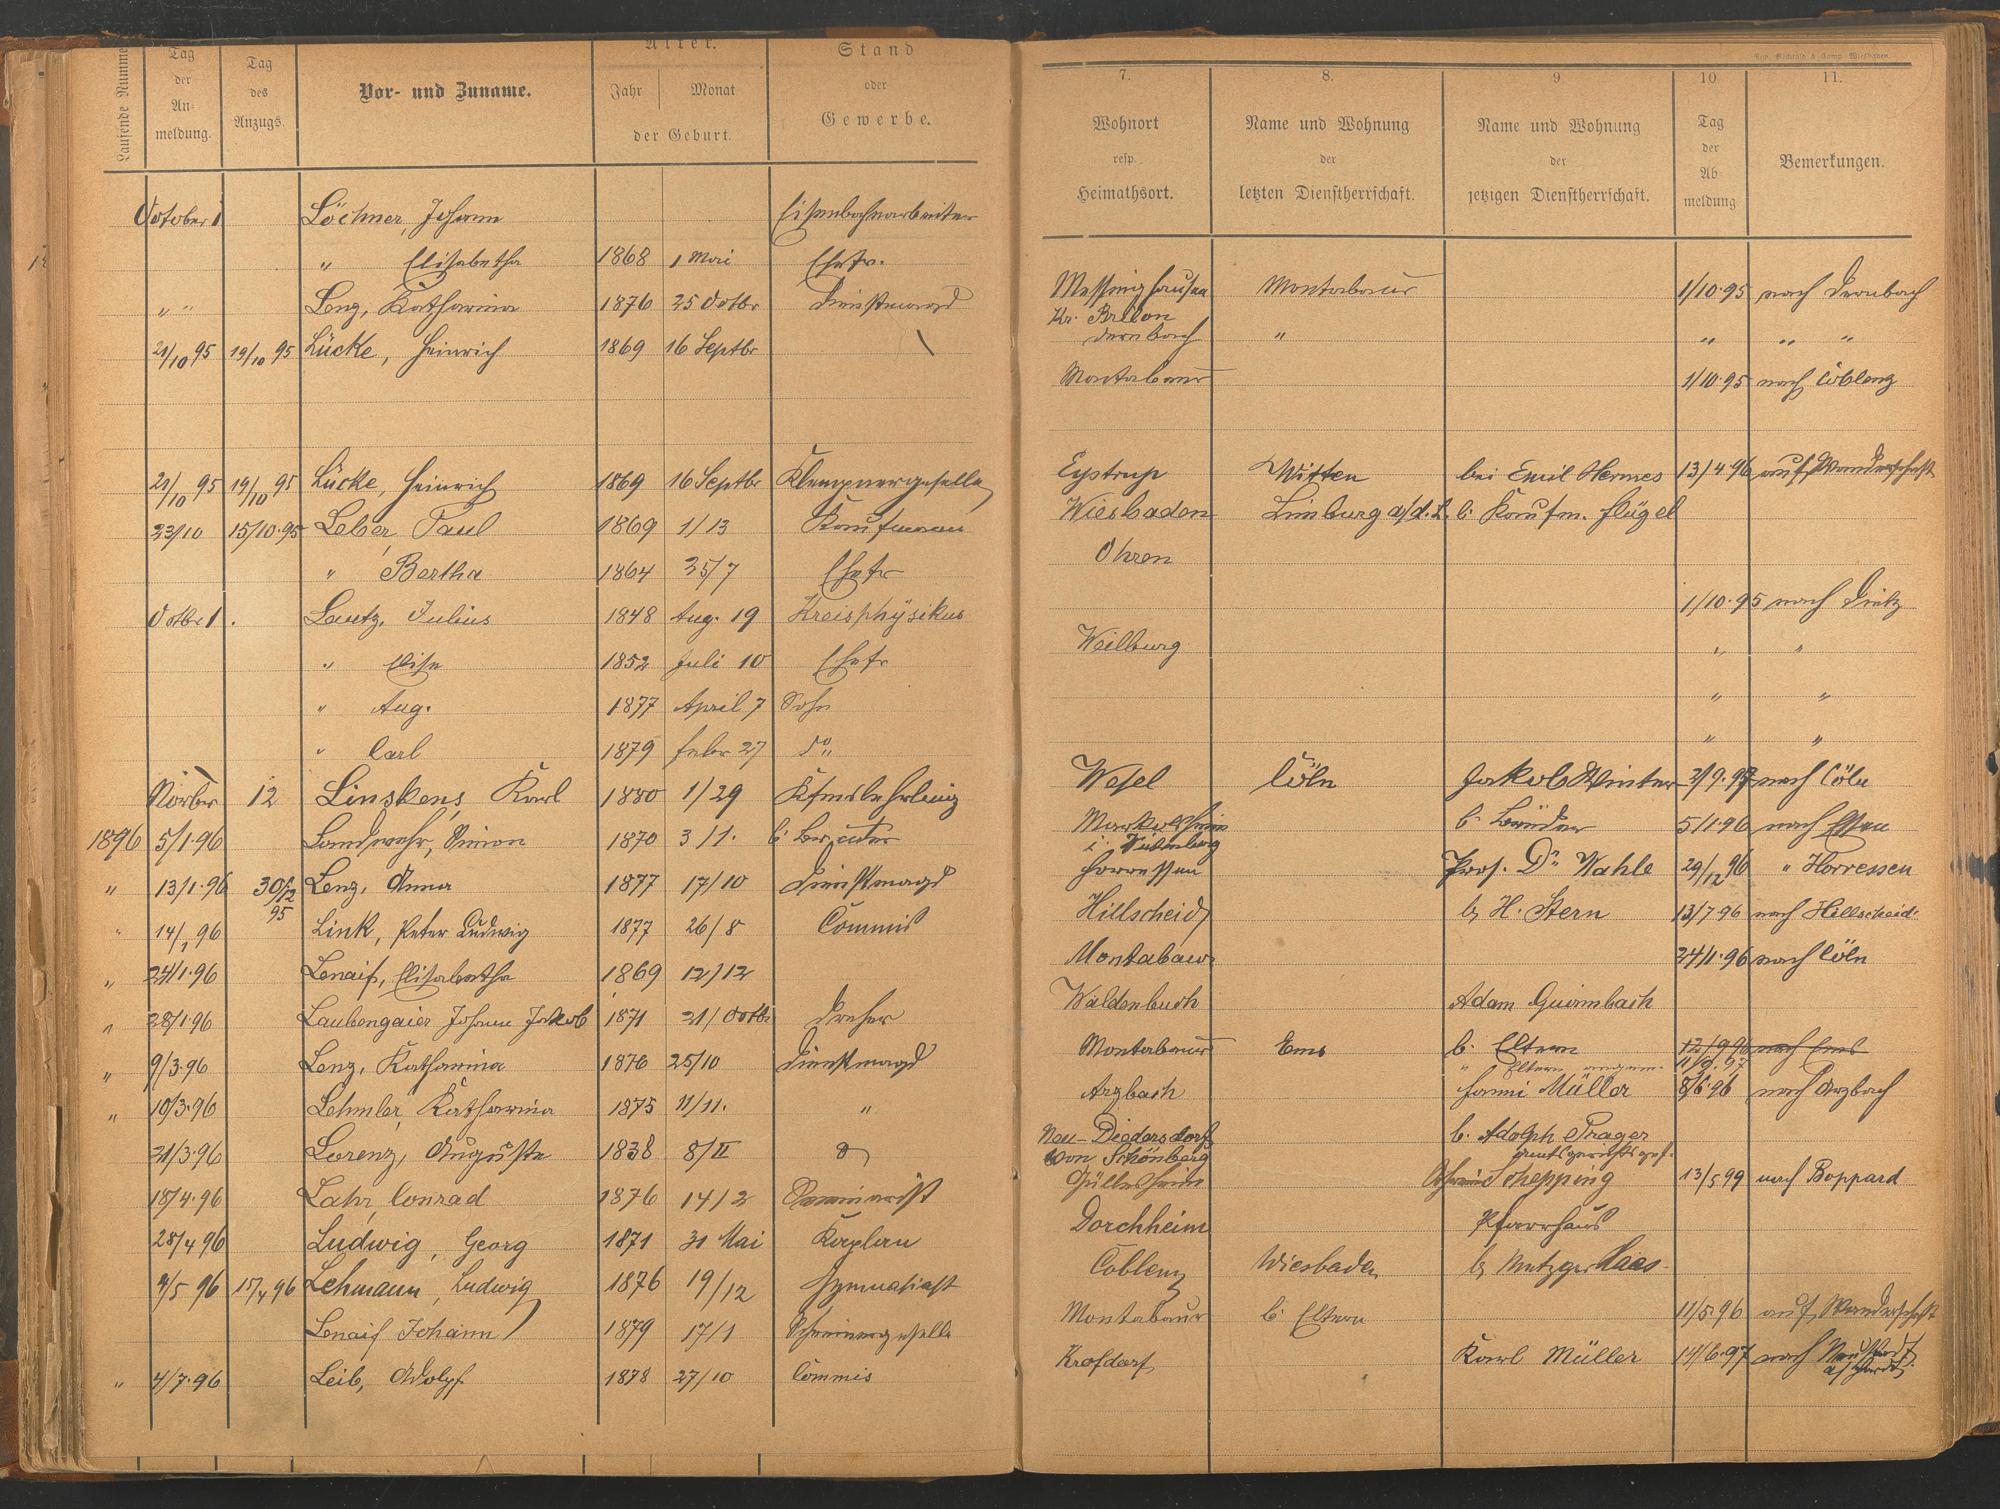 Laufende Numme
Tag der An- meldung.
Tag des Anzugs.
Vor- und Zuname.
Alter.
Jahr Monat
der Geburt.
Stand oder Gewerbe.
October 1 Löchner, Johann Eisenbahnarbeiter
" Elisabetha 1868 1 Mai Ehefr.
" " Lenz, Katharina 1876 25 Octbr Dienstmagd
21/10 95 19/10 95 Lücke, Heinrich 1869 16 Septbr
21/10 95 19/10 95 Lücke, Heinrich 1869 16 Septbr Klempnergeselle
23/10 15/10.95 Leber, Paul 1869 1/13 Kaufmann
" Bertha 1864 25/7 Ehefr
Octbr 1. Lautz, Julius 1848 Aug. 19 Kreisphysikus
" Elise 1852 Juli 10 Ehefr
" Aug. 1877 April 7 Sohn
" Carl 1879 Febr 27 do
Novbr 12 Linskens, Karl 1880 1/29 Kfmslehrling
1896 5/1.96 Landwehr, Simon 1870 3/1.
" 13/1.96 30/12 95 Lenz, Anna 1877 17/10 Dienstmagd
" 14/1 96 Link, Peter Ludwig 1877 26/8 Commis
" 24/1.96 Lenaif, Elisabetha 1869 12/12
" 28/1.96 Laubengaier Johann Jakob 1871 21/Octbr Dreher
" 9/3.96 Lenz, Katharina 1876 25/10 Dienstmagd
" 10/3.96 Lehmler, Katharina 1875 11/11. "
21/3.96 Lorenz, Auguste 1838 8/II
18/4.96 Lahr, Conrad 1876 14/2 Seminarist
28/4 96 Ludwig, Georg 1871 31 Mai Kaplan
4/5 96 15/4 96 Lehmann, Ludwig 1876 19/12 Gymnasiast
Lenaif Johann 1879 17/1 Schreinergeselle
" 4/7.96 Leib, Adolf 1878 27/10 Commis
7. 8. 9. 10 11.
Wohnort resp. Heimathsort.
Name und Wohnung der letzten Dienstherrschaft.
Name und Wohnung der jetzigen Dienstherrschaft.
Tag der Ab- meldung
Bemerkungen.
Messinghausen Montabaur 1/10.95 nach Dernbach
Kr. Brilon
Dernbach " " " "
Montabaur 1/10.95 nach Coblenz
Eystrup Witten bei Emil Hermes 13/4.96 auf Wanderschaft
Wiesbaden Limburg a/d.L. b. Kaufm. Flügel
Ohren
1/10.95 nach Dietz
Weilburg " "
" "
" "
Wesel Cöln Jakob Winter 2/9.97 nach Cöln
Markelsheim b. Bender 5/1.96 nach Essen
Horressen Prof. Dr. Wahle 29/12 96 " Horressen
Hillscheid b. H. Stern 13/7.96 nach Hillscheid.
Montabaur 24/1.96 nach Cöln
Waldenbuch Adam Guirmbach
Montabaur Ems b. Eltern 12/9 96 nach Ems
" Eltern 11/9.97
Arzbach Hanni Müller 8/6.96 nach Arzbach
Neu-Diedersdorf b. Adolph Prager
von Schönberg
Güllesheim Schepping 13/5 99 nach Boppard
Dorchheim Pfarrhaus
Coblenz Wiesbaden b. Metzger Haas
Montabaur b. Eltern 11/5.96 auf Wanderschaft
Krofdorf Karl Müller 14/6.97 nach Neustadt
a/Hardt